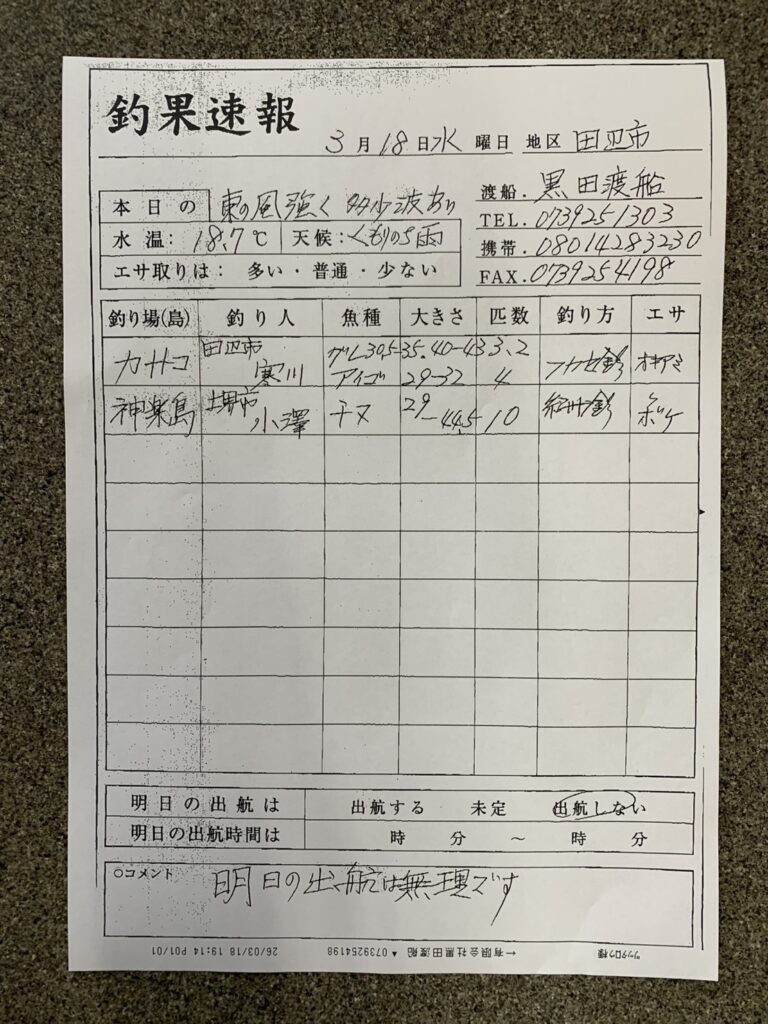 釣果速報
3月18日水曜日 地区 田辺市
渡船. 黒田渡船
TEL. 0739251303
携帯. 08014283230
FAX. 0739254198
本日の 東の風強く 多少波あり
水温: 18.7℃ 天候: くもりのち雨
エサ取りは: 多い・普通・少ない
釣り場(島) 釣り人 魚種 大きさ 匹数 釣り方 エサ
カサコ 田辺市 寒川 グレ 30.5-35.40-43 3.2 フカセ釣 オキアミ
アイゴ 29-32 4
神楽島 堺市 小澤 チヌ 29-44.5 10 紀州釣 ボケ
明日の出航は 出航する 未定 出航しない
明日の出航時間は 時 分 〜 時 分
○コメント
明日の出航は無理です
ツッタロウ様 ←有限会社黒田渡船 ▲0739254198 26/03/18 19:14 P01/01